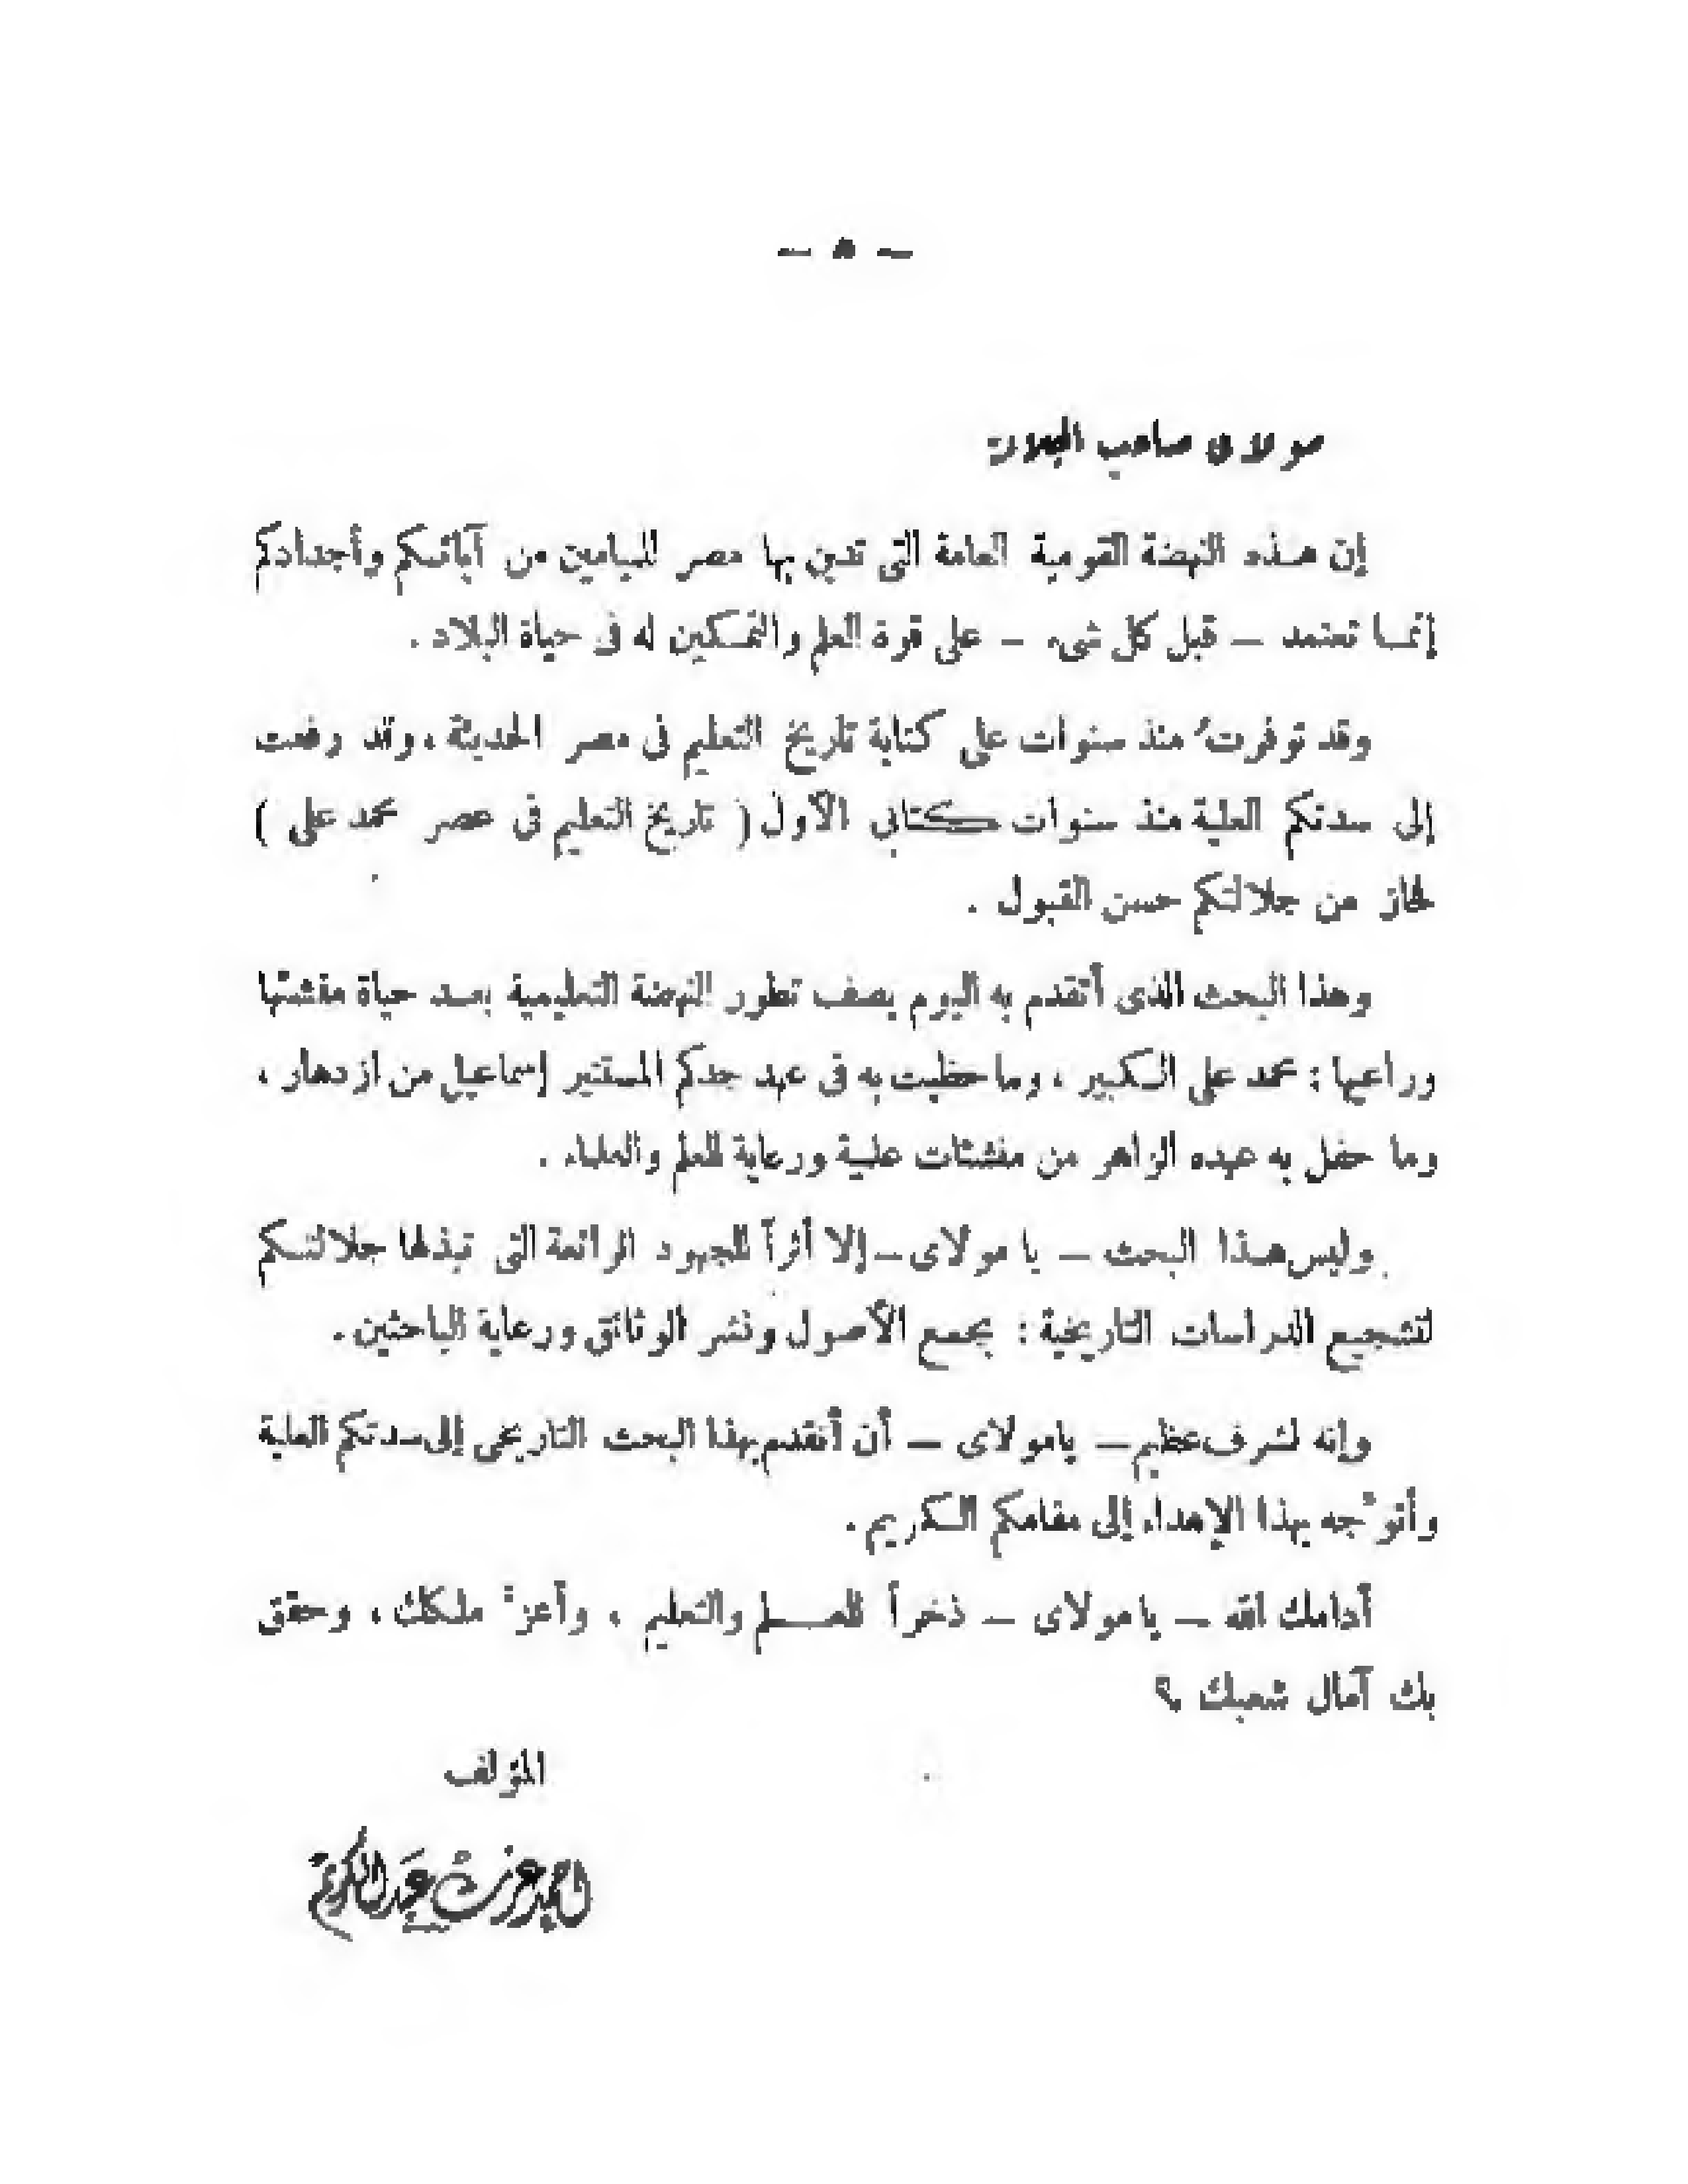 — ٥ —
مولاى صاحب الجلالة
إن هـذه النهضة القومية العامة التى تدين بها مصر للميامين من آبائكم وأجدادكم
إنمـا تعتمد — قبل كل شىء — على قوة العلم والتمكين له فى حياة البلاد .
وقد توفرتُ منذ سنوات على كتابة تاريخ التعليم فى مصر الحديثة ، وقد رفعت
إلى سدتكم العلية منذ سنوات كتابى الأول ( تاريخ التعليم فى عصر محمد على )
فحاز من جلالتكم حسن القبول .
وهذا البحث الذى أتقدم به اليوم يصف تطور النهضة التعليمية بعـد حياة منشئها
وراعيها : محمد على الكبير ، وما حظيت به فى عهد جدكم المستنير إسماعيل من ازدهار ،
وما حفل به عهده الزاهر من منشئات علمية ورعاية للعلم والعلماء .
وليس هـذا البحث — يا مولاى — إلا أثراً للجهود الرائعة التى تبذلها جلالتكم
لتشجيع الدراسات التاريخية : بجمع الأصول ونشر الوثائق ورعاية الباحثين .
وإنه لشرف عظيم — يا مولاى — أن أتقدم بهذا البحث التاريخى إلى سدتكم العلية
وأتوجّه بهذا الإهداء إلى مقامكم الكريم .
أدامك الله — يا مولاى — ذخراً للعـلم والتعليم ، وأعزّ ملكك ، وحقق
بك آمال شعبك ؟
المؤلف
احمد عزت عبد الكريم